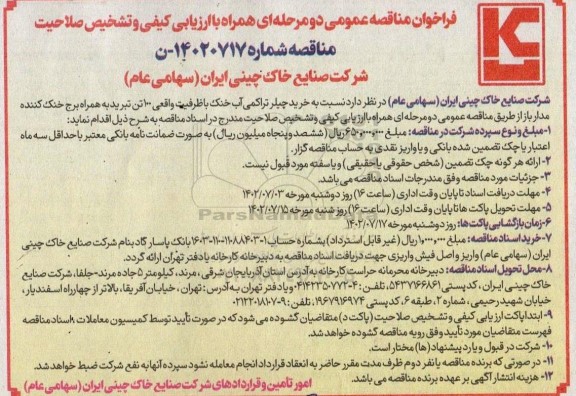 فراخوان مناقصه عمومی دو مرحله ای همراه با ارزیابی کیفی و تشخیص صلاحیت
مناقصه شماره ۱۴۰۲۰۷۱۷-ن
شرکت صنایع خاک چینی ایران (سهامی عام)
شرکت صنایع خاک چینی ایران (سهامی عام) در نظر دارد نسبت به خرید چیلر تراکمی آب خنک با ظرفیت واقعی ۱۰۰ تن تبرید به همراه برج خنک کننده
مدار باز از طریق مناقصه عمومی دو مرحله ای همراه با ارزیابی کیفی و تشخیص صلاحیت مندرج در اسناد مناقصه به شرح ذیل اقدام نماید:
۱-مبلغ و نوع سپرده شرکت در مناقصه: مبلغ ۶۵۰،۰۰۰،۰۰۰ ریال (ششصد و پنجاه میلیون ریال) به صورت ضمانت نامه بانکی معتبر با حداقل سه ماه
اعتبار یا چک تضمین شده بانکی و یا واریز نقدی به حساب مناقصه گزار.
۲- ارائه هر گونه چک تضمین (شخص حقوقی یا حقیقی) و یا سفته مورد قبول نیست.
۳- جزئیات مورد مناقصه وفق مندرجات اسناد مناقصه می باشد.
۴- مهلت دریافت اسناد تا پایان وقت اداری (ساعت ۱۶) روز دوشنبه مورخه ۱۴۰۲/۰۷/۰۳
۵- مهلت تحویل پاکت ها تا پایان وقت اداری (ساعت ۱۶) روز شنبه مورخه ۱۴۰۲/۰۷/۱۵
۶-زمان بازگشایی پاکت ها: روز دوشنبه مورخه ۱۴۰۲/۰۷/۱۷
۷-خرید اسناد مناقصه: مبلغ ۱،۰۰۰،۰۰۰ ریال (غیر قابل استرداد) بشماره حساب بانک پاسارگاد بنام شرکت صنایع خاک چینی
ایران (سهامی عام) واریز و اصل فیش واریزی جهت دریافت اسناد مناقصه به دبیرخانه کارخانه یا دفتر تهران ارائه گردد.
۸-محل تحویل اسناد مناقصه: دبیرخانه محرمانه حراست کارخانه به آدرس استان آذربایجان شرقی، مرند، کیلومتر ۵ جاده مرند-جلفا، شرکت صنایع
خاک چینی ایران، کدپستی ۵۴۳۷۱۶۶۸۶۱، تلفن: ۰۴۱۴۲۳۵۰۷۷۲-۴ و یا دفتر تهران به آدرس: تهران، خیابان آفریقا، بالاتر از چهارراه اسفندیار،
خیابان شهید رحیمی، شماره ۲، طبقه ۶، کدپستی ۱۹۶۷۹۱۶۹۷۴، تلفن: ۰۲۱۲۲۰۱۸۰۷-۹
۹- ابتدا پاکت ارزیابی کیفی و تشخیص صلاحیت (پاکت د) متقاضیان گشوده می شود که در صورت تأیید توسط کمیسیون معاملات، اسناد مناقصه
فهرست متقاضیان مورد تأیید وفق رویه مناقصه گشوده خواهد شد.
۱۰- شرکت در قبول و یا رد پیشنهاد (ها) مختار است.
۱۱- در صورتی که برنده مناقصه یا نفر دوم ظرف مدت مقرر حاضر به انعقاد قرارداد انجام معامله نشود سپرده آنها به نفع شرکت ضبط خواهد شد.
۱۲- هزینه انتشار آگهی بر عهده برنده مناقصه می باشد.
امور تامین و قراردادهای شرکت صنایع خاک چینی ایران (سهامی عام)